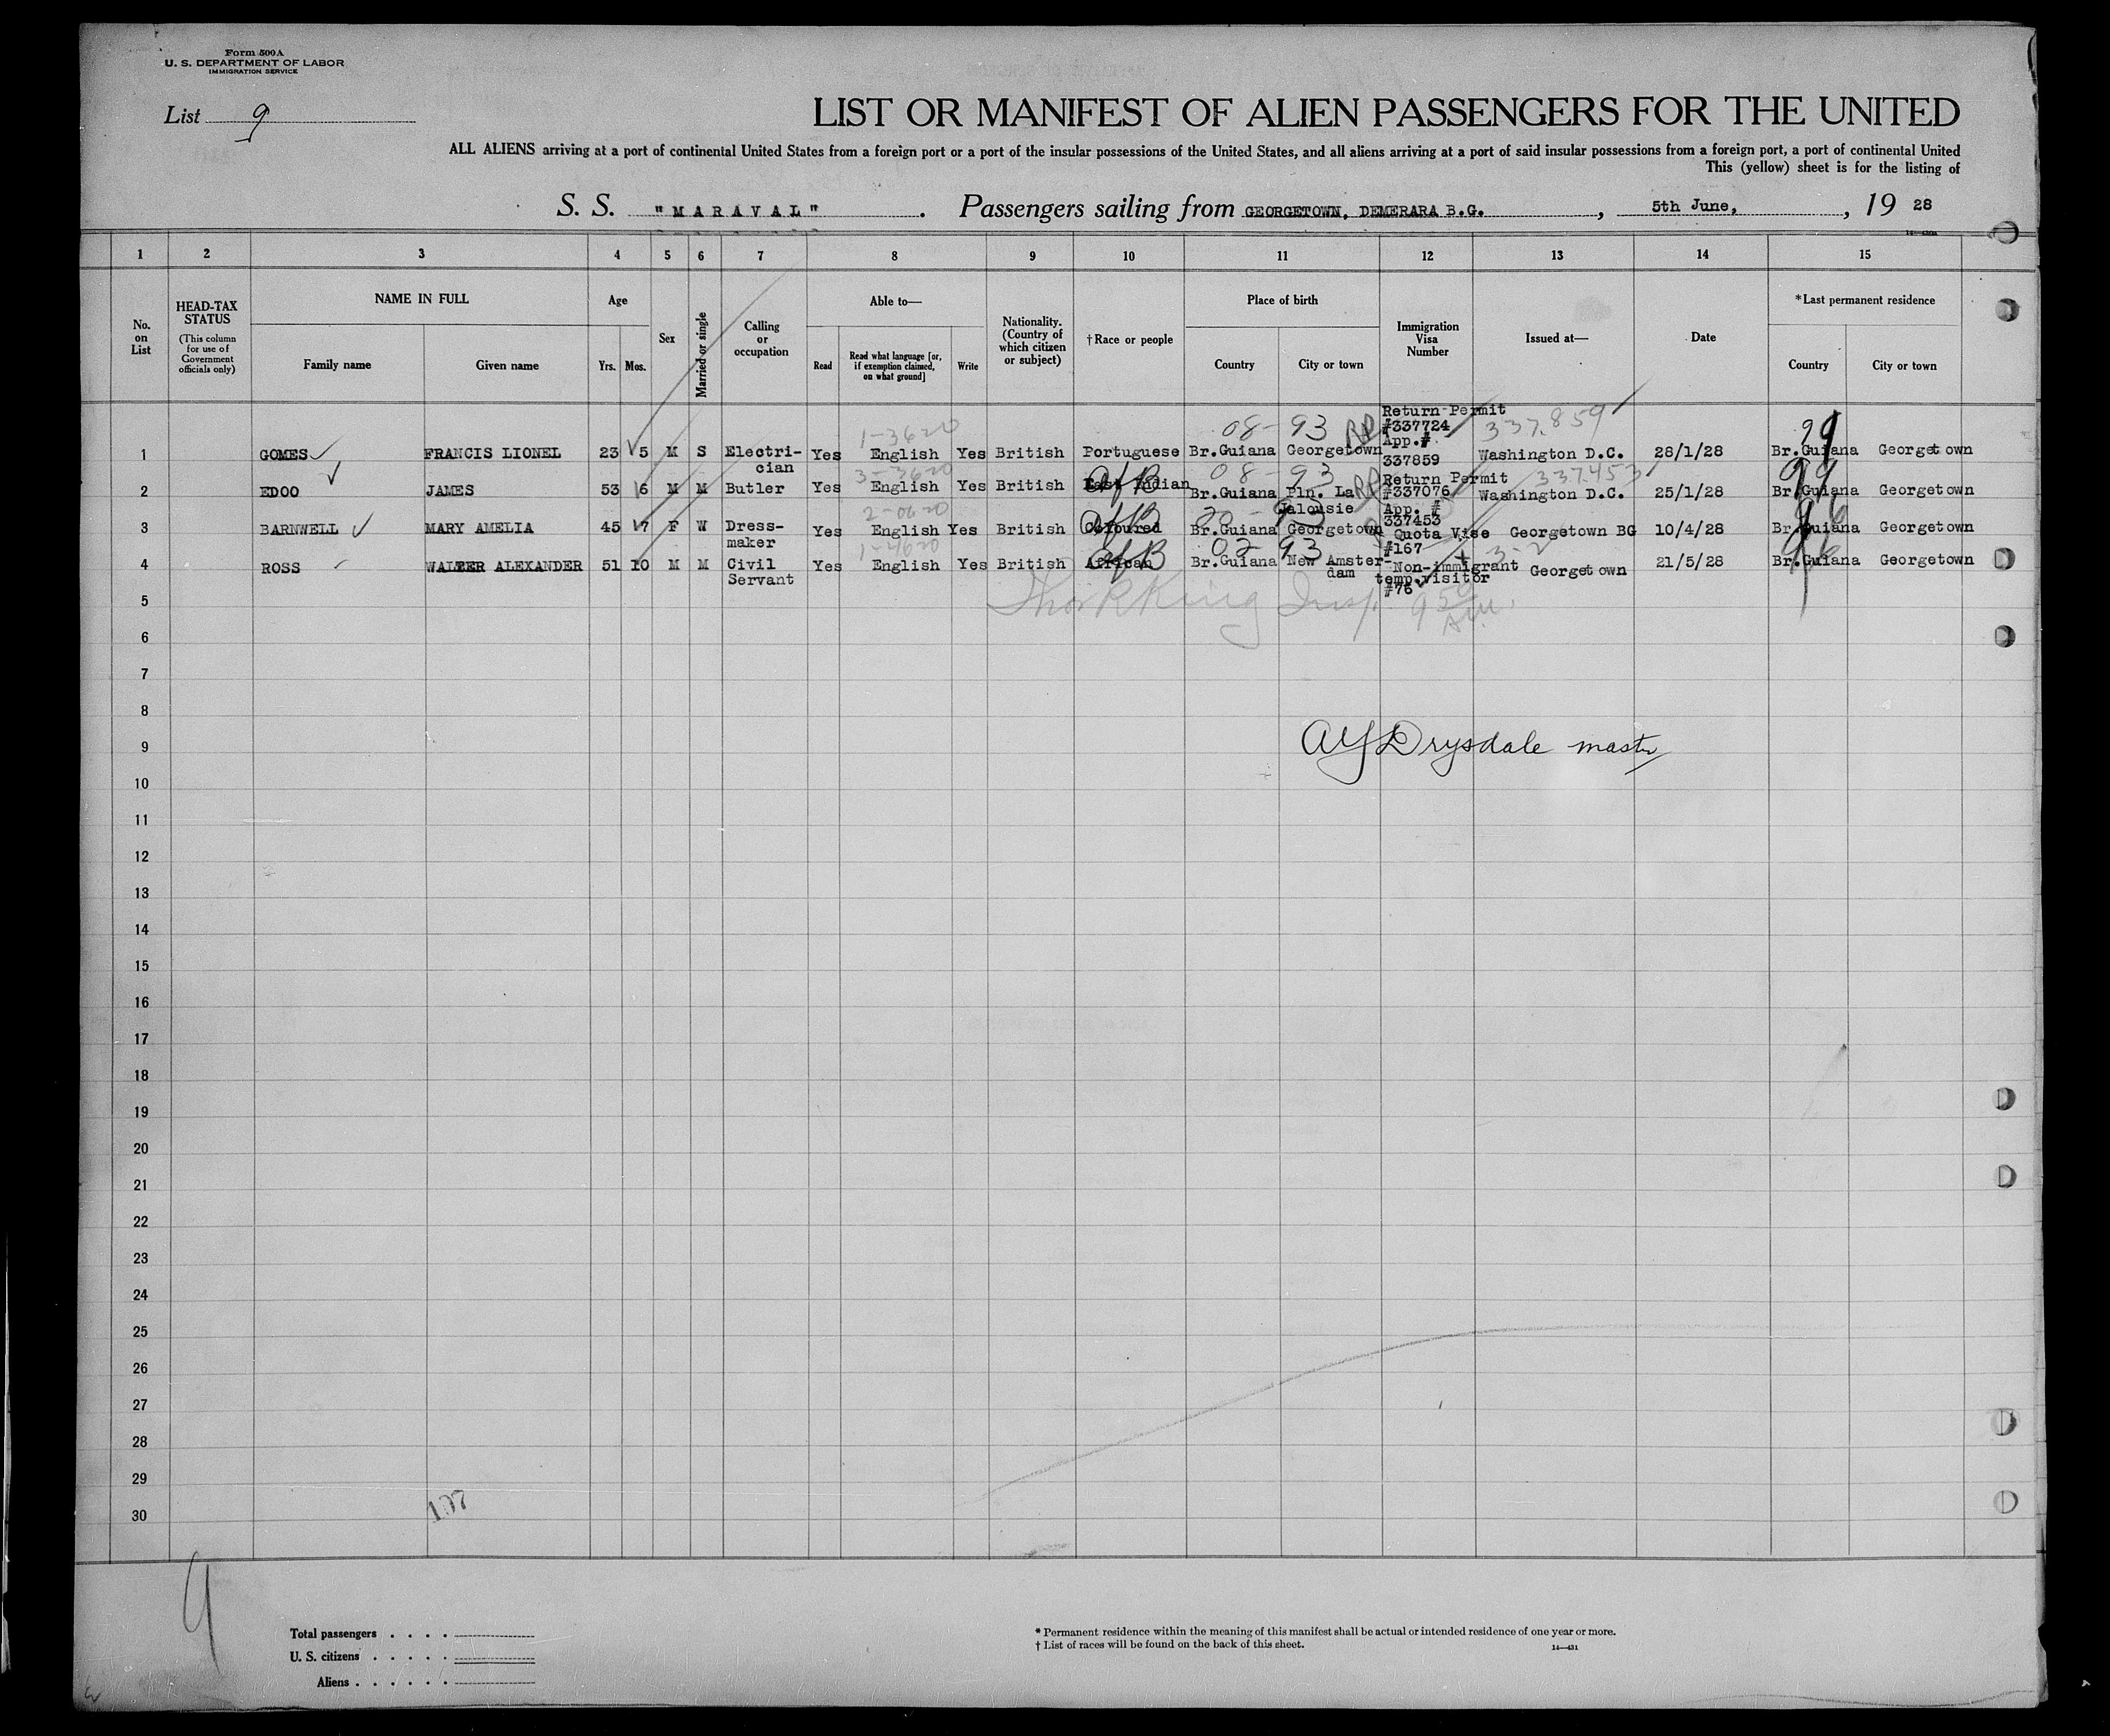 Form 500A
U. S. DEPARTMENT OF LABOR
IMMIGRATION SERVICE
List 9
LIST OR MANIFEST OF ALIEN PASSENGERS FOR THE UNITED
ALL ALIENS arriving at a port of continental United States from a foreign port or a port of the insular possessions of the United States, and all aliens arriving at a port of said insular possessions from a foreign port, a port of continental United
This (yellow) sheet is for the listing of
S. S. "MARAVAL". Passengers sailing from GEORGETOWN, DEMERARA B.G., 5th June, , 19 28
1 2 3 4 5 6 7 8 9 10 11 12 13 14 15
No. on List
HEAD-TAX STATUS (This column for use of Government officials only)
NAME IN FULL
Family name Given name
Age
Yrs. Mos.
Sex
Married or single
Calling or occupation
Able to—
Read Read what language [or, if exemption claimed, on what ground] Write
Nationality. (Country of which citizen or subject)
†Race or people
Place of birth
Country City or town
Immigration Visa Number
Issued at—
Date
*Last permanent residence
Country City or town
1 GOMES FRANCIS LIONEL 23 5 M S Electrician Yes 1-3620 English Yes British Portuguese 08-93 Br.Guiana Georgetown RP Return Permit #337724 App.# 337859 337.859 Washington D.C. 28/1/28 99 Br.Guiana Georgetown
2 EDOO JAMES 53 6 M M Butler Yes 3-3620 English Yes British East Indian AfB 08-93 Br.Guiana Pln. La Jalousie RP Return Permit #337076 App. # 337453 337.453 Washington D.C. 25/1/28 99 Br.Guiana Georgetown
3 BARNWELL MARY AMELIA 45 7 F W Dress-maker Yes 2-0620 English Yes British Coloured AfB 20-93 Br.Guiana Georgetown Quota Vise #167 Georgetown BG 10/4/28 Br.Guiana Georgetown
4 ROSS WALTER ALEXANDER 51 10 M M Civil Servant Yes 1-4620 English Yes British African AfB 02-93 Br.Guiana New Amsterdam Non-immigrant temp.visitor #76 3-2 Georgetown 21/5/28 Br.Guiana Georgetown
5 King Insp. 9 50 A.M.
6
7
8
9 Drysdale master
10
11
12
13
14
15
16
17
18
19
20
21
22
23
24
25
26
27
28
29
30
9
Total passengers . . . .
U. S. citizens . . . . .
Aliens . . . . . .
* Permanent residence within the meaning of this manifest shall be actual or intended residence of one year or more.
† List of races will be found on the back of this sheet.
14—431